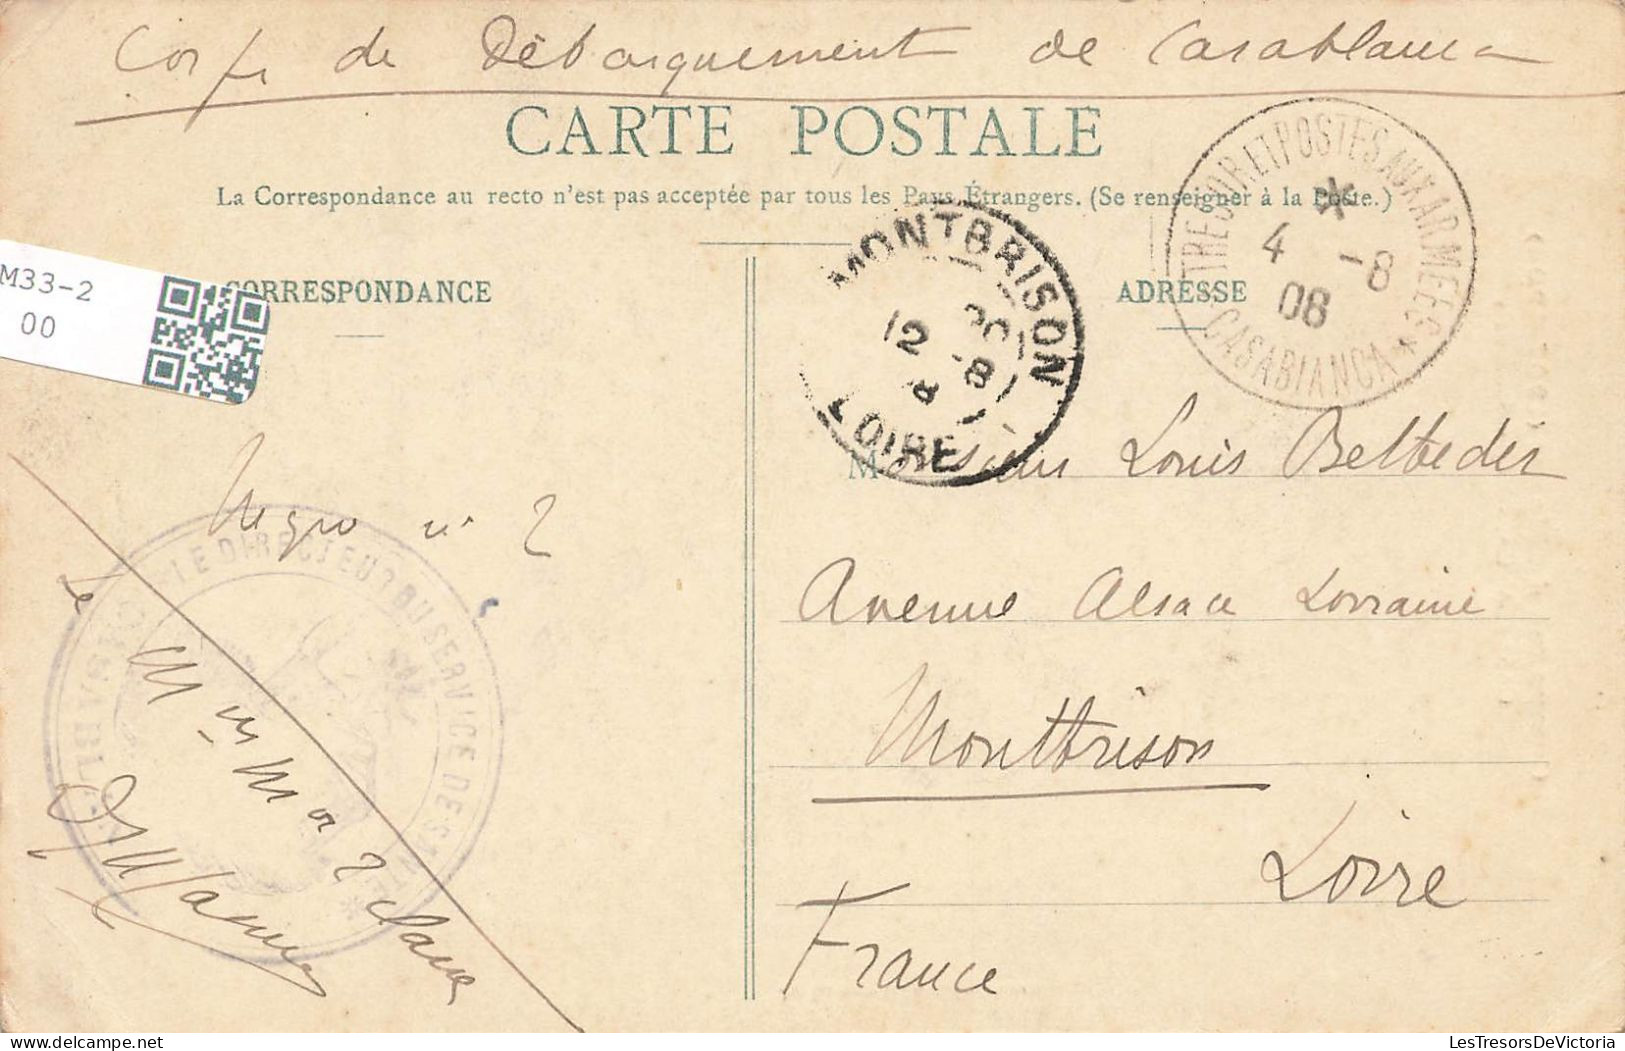 Corps de Débarquement de Casablanca
CARTE POSTALE
La Correspondance au recto n'est pas acceptée par tous les Pays Étrangers. (Se renseigner à la Poste.)
TRESOR ET POSTES AUX ARMEES
*
4 -8
08
CASABLANCA *
MONTBRISON
12 8
LOIRE
M33-2
00
CORRESPONDANCE
ADRESSE
Monsieur Louis
Avenue Alsace Lorraine
Montbrison
Loire
France
n° 2
Le
LE DIRECTEUR DU SERVICE DES
LesTresorsDeVictoria.com